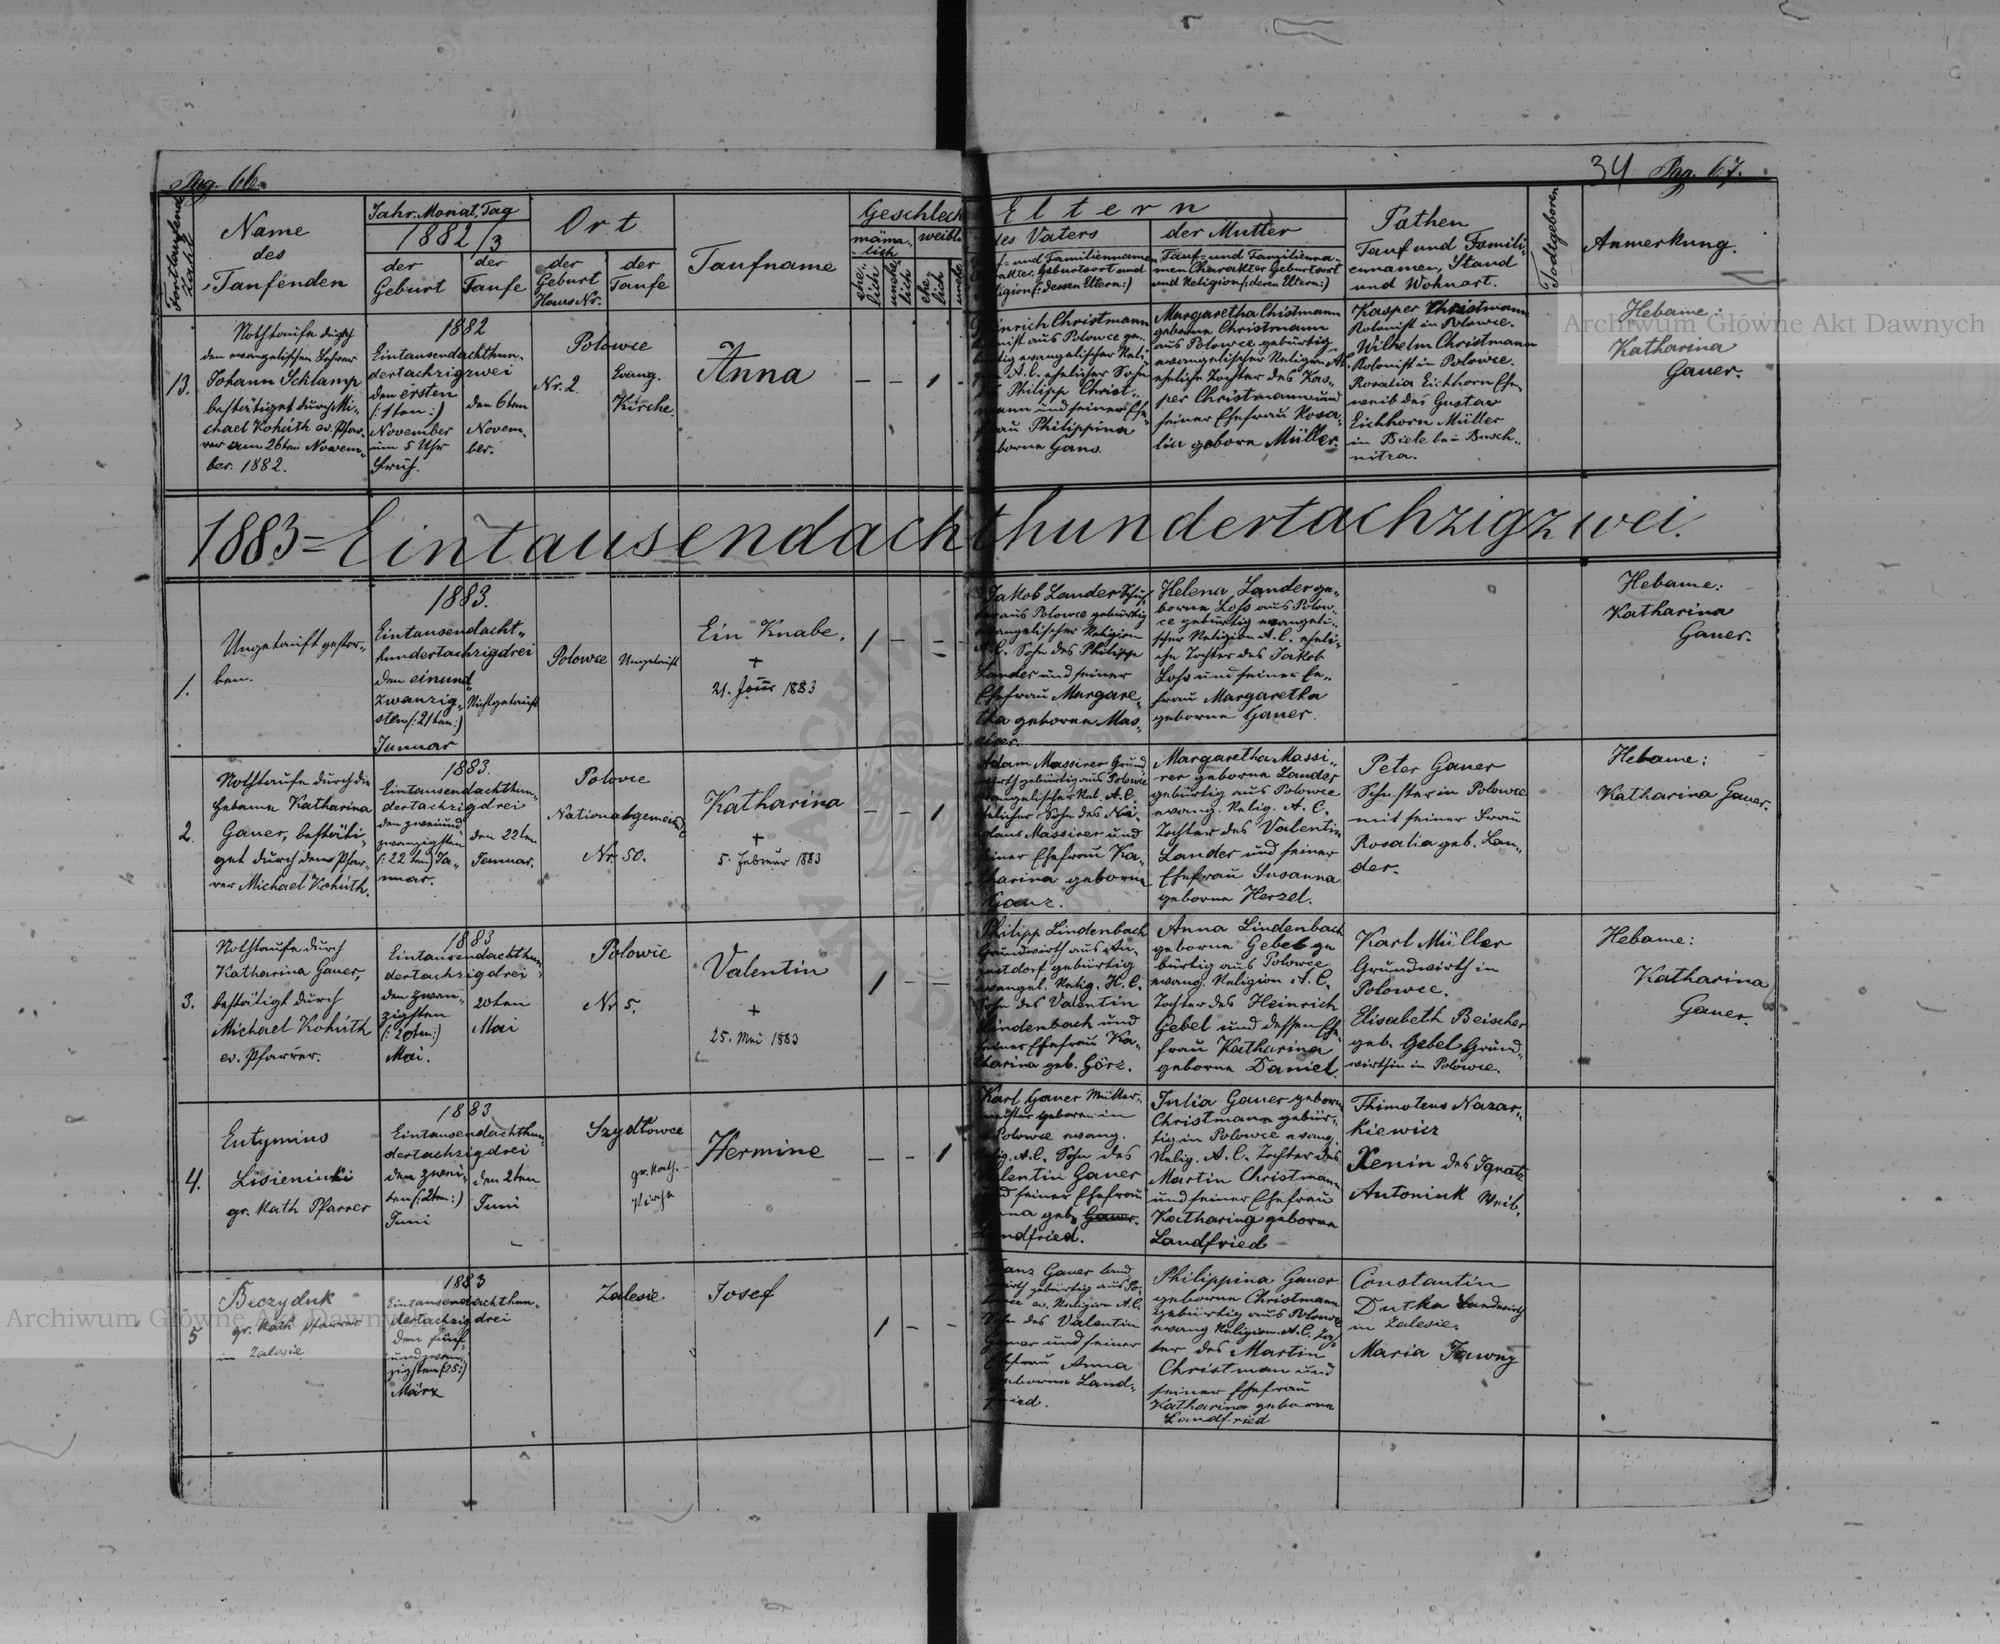 Pag. 66.
34 Pag. 67.
Fortlaufende Zahl
Name
des
Taufenden
Jahr. Monat. Tag
1882/3
der
Geburt
der
Taufe
Ort
der
Geburt
Haus Nr.
der
Taufe
Taufname
Geschlech
männ-
lich
weibl.
ehe-
lich
unehe-
lich
ehe-
lich
unehe
Eltern
des Vaters
und Familiennamen
akter, Geburtsort und
ligion (: dessen Eltern:)
der Mutter
Tauf- und Familienna-
men Charakter Geburtsort
und Religion (: deren Eltern:)
Pathen
Tauf und Famili-
ennamen, Stand
und Wohnort.
Todtgeboren
Anmerkung.
13.
Nothtaufe durch
den evangelischen Lehrer
Johann Schlamp
bestätiget durch Mi-
chael Kohúth ev. Pfar-
rer am 26ten Novem-
ber. 1882.
1882
Eintausendachthun-
dertachzigzwei
den ersten
(: 1ten :)
November
um 5 Uhr
Früh.
den 6ten
Novem-
ber.
Polowce
Nr. 2.
Evang.
Kirche.
Anna
– – 1 -
nrich Christmann
nist aus Polowce ge-
tig evangelischer Reli-
A. C. ehelicher Sohn
Philipp Christ-
mann und seiner Ehe-
au Philippina
borne Gans
Margaretha Christmann
geborne Christmann
aus Polowce gebürtig
evangelischer Religion A. C.
eheliche Tochter des Kas-
per Christmann und
seiner Ehefrau Rosa-
lia geborne Müller.
Kasper Christmann
Kolonist in Polowce.
Wilhelm Christmann
Kolonist in Polowce.
Rosalia Eichhorn Ehe-
weib des Gustav
Eichhorn Müller
in Biele bei Busch-
nitza.
Hebame:
Katharina
Gauer.
1883 = Eintausendachthundertachzigzwei.
1.
Ungetauft gestor-
ben.
1883.
Eintausendacht-
hundertachzigdrei
den einund-
zwanzig-
sten (: 21ten :)
Januar
Nicht getauft
Polowce
Ungetauft
Ein Knabe.
+
21. 1883
1 – –
Jakob Lander Schus
ter aus Polowce gebürtig
evangelischer Religion
A. C. Sohn des Philipp
Lander und seiner
Ehefrau Margare-
tha geborne Mas-
Helena Lander ge-
borne Loss aus Polow-
ce gebürtig evangeli-
scher Religion A. C. eheli-
che Tochter des Jakob
Loss und seiner Ehe-
frau Margaretha
geborne Gauer.
Hebame:
Katharina
Gauer.
2.
Nothtaufe durch die
Hebame Katharina
Gauer, bestäti-
get durch dem Pfar-
rer Michael Kohúth.
1883.
Eintausendachthun-
dertachzigdrei
den zweiund
zwanzigsten
(: 22ten) Ja-
nuar.
den 22ten
Januar.
Polowce
Nationalgemeinde
Nr. 50.
Katharina
+
5. Februar 1883
– – 1
Adam Massirer Grund
wirth gebürtig aus Polowce
evangelischer Rel. A. C.
ehelicher Sohn des Nik
olaus Massirer und
seiner Ehefrau Ka-
tharina geborne
Ganz.
Margaretha Massi-
rer geborne Lander
gebürtig aus Polowce
evang. Relig. A. C.
Tochter des Valentin
Lander und seiner
Ehefrau Susanna
geborne Herzel.
Peter Gauer
Schuster in Polowce
mit seiner Frau
Rosalia geb. Lan-
der.
Hebame:
Katharina Gauer.
3.
Nothtaufe durch
Katharina Gauer,
bestätigt durch
Michael Kohúth
ev. Pfarrer.
1883
Eintausendachthun-
dertachzigdrei
den zwan-
zigsten
(: 20ten :)
Mai.
20ten
Mai
Polowce
Nr. 5.
Valentin
+
25. Mai 1883
1 – –
Philipp Lindenbach
Grundwirth aus Au-
gustdorf gebürtig
evangel. Relig. H. C.
Sohn des Valentin
Lindenbach und
seiner Ehefrau Ka-
tharina geb. Görz.
Anna Lindenbach
geborne Gebel ge
bürtig aus Polowce
evang. Religion A. C.
Tochter des Heinrich
Gebel und dessen Ehe-
frau Katharina
geborne Daniel.
Karl Müller
Grundwirth in
Polowce.
Elisabeth Beischer
geb. Gebel Grund-
wirthin in Polowce.
Hebame:
Katharina
Gauer.
4.
Eutymius
Lisieniecki
gr. Kath Pfarrer
1883
Eintausendachthun-
dertachzigdrei
den zwei-
ten (: 2ten :)
Juni
den 2ten
Juni
Szydlowce
gr. Kath.
Kirche
Hermine
– – 1
Karl Gauer Müller-
meister geboren in
Polowce evang.
Relig. A. C. Sohn des
Valentin Gauer
und seiner Ehefrau
Anna geb. Gauer.
Landfried.
Julia Gauer geborne
Christmann gebür-
tig in Polowce evang.
Relig. A. C. Tochter des
Martin Christmann
und seiner Ehefrau
Katharina geborne
Landfried
Thimoteus Nazar-
kiewicz
Xenin des Ignatz
Antoniuk Weib.
5
Beczyduk
gr. Kath Pfarrer
in Zalesie
1883
Eintausendachthun-
dertachzigdrei
den fünf-
undzwan-
zigsten (: 25 :)
März
Zalesie.
Josef
1 – –
Franz Gauer Land
wirth gebürtig aus Po-
lowce ev. Religion A. C.
Sohn des Valentin
Gauer und seiner
Ehefrau Anna
geborne Land-
fried.
Philippina Gauer
geborne Christmann
gebürtig aus Polowce
evang Religion. A. C. Toch
ter des Martin
Christman und
seiner Ehefrau
Katharina geborne
Landfried
Constantin
Dutka Landwirth
in Zalesie.
Maria Jawny
Archiwum Główne Akt Dawnych
Archiwum Główne Akt Dawnych